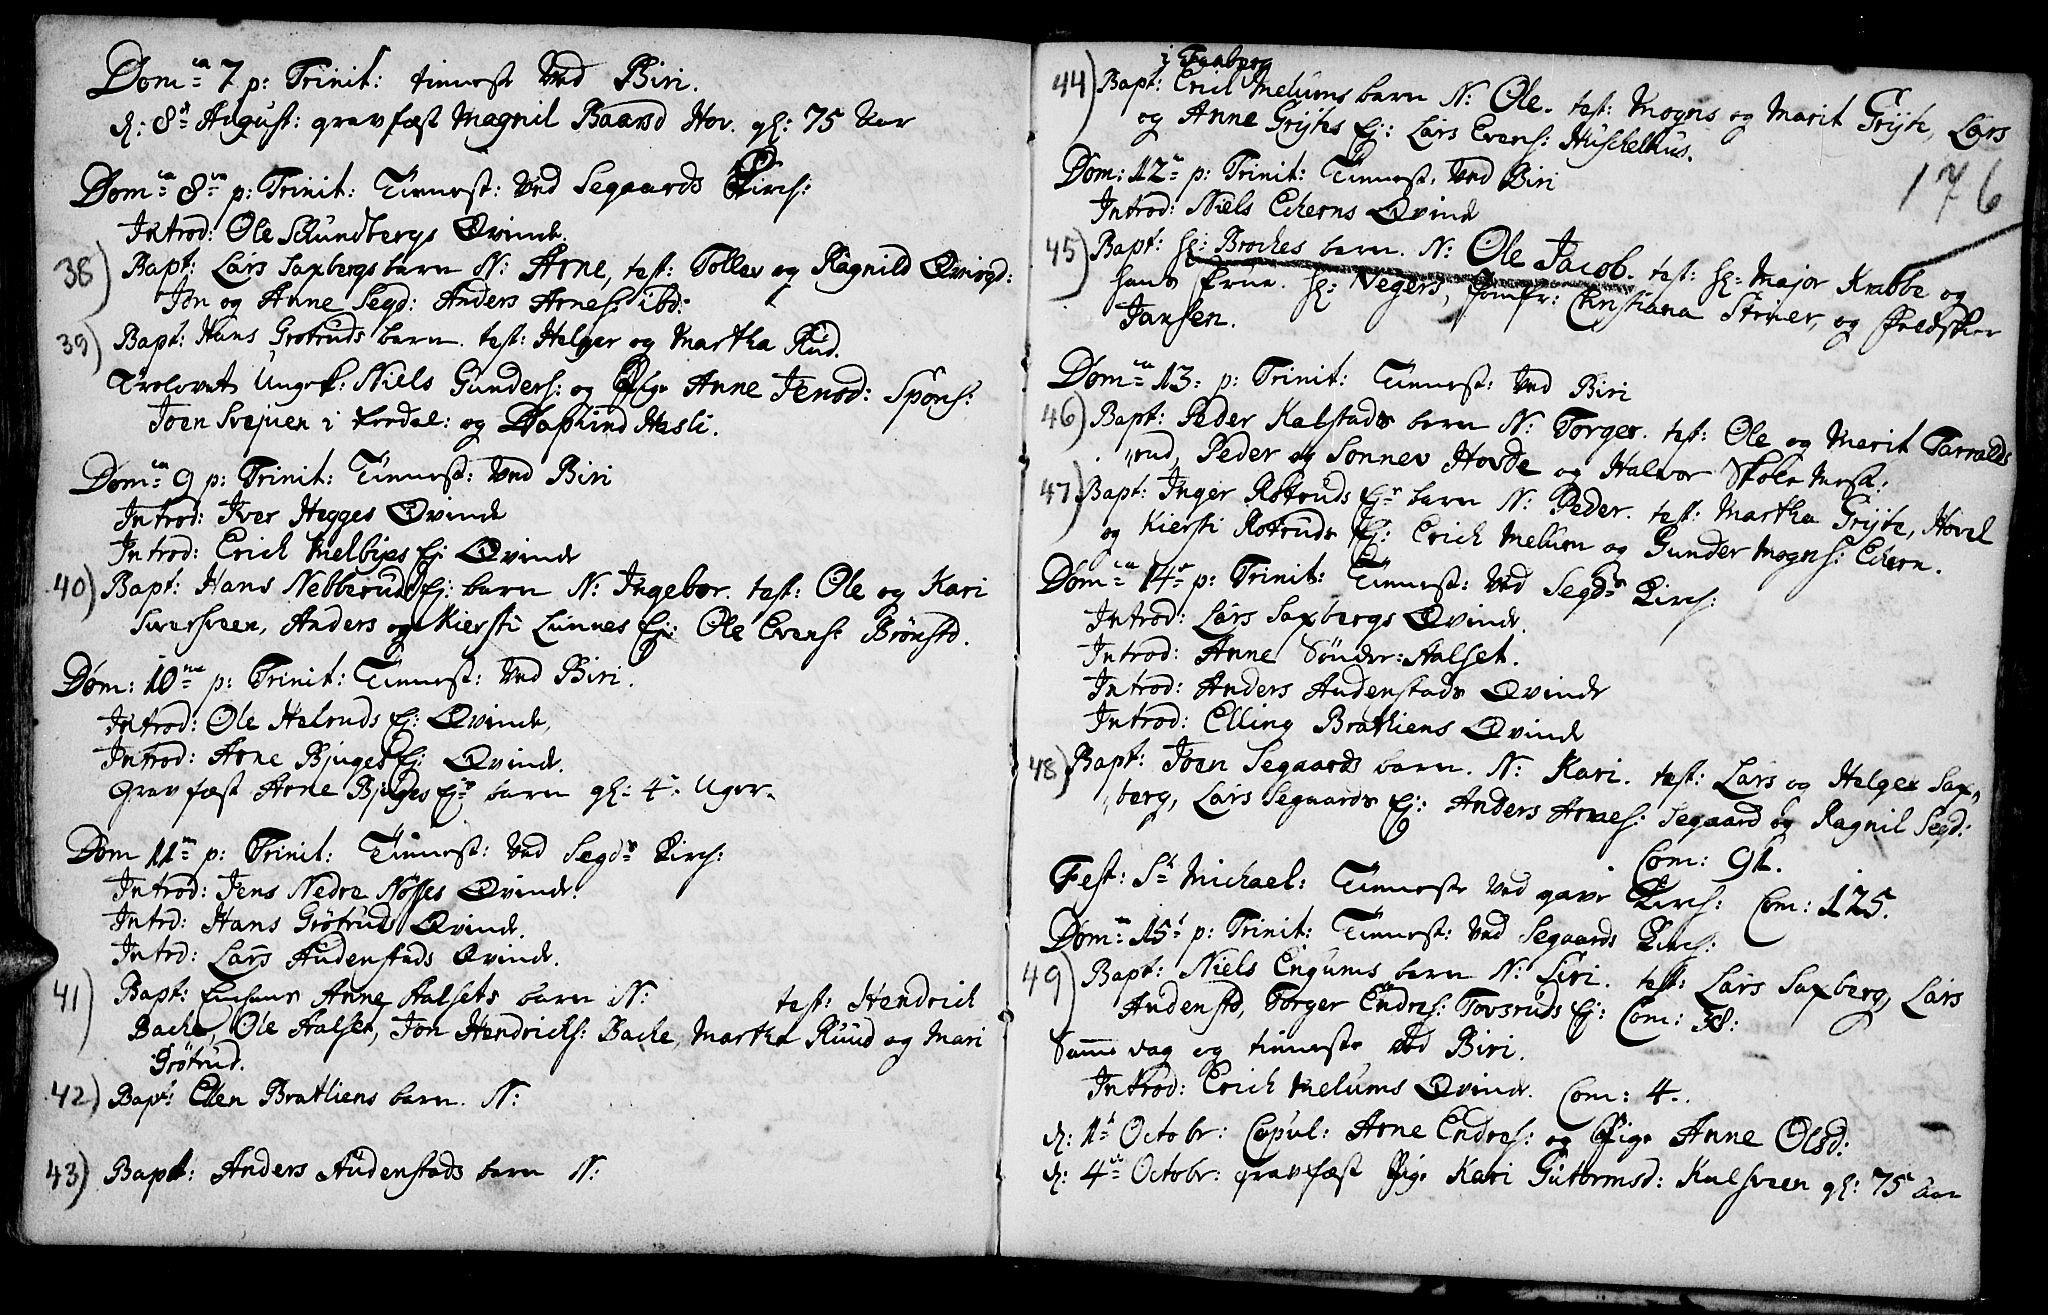 Dom: ca 7 p: Trinit: tieneste Ved Biri.
d: 8de August: gravfæst Magnil Baarsd Hov. gl: 75 Aar
Dom: ca 8va p: Trinit: Tienest: Ved Segaards Kirch:
Introd: Ole Schundbergs Qvinde.
38) Bapt: Lars Saxbergs barn N: Arne, test: Tollev og Ragnild
Jon og Anne Segd: Anders Arnes: ibd:
39) Bapt: Hans Grøtruds barn. test: Helger og Martha Rud.
Trolovet Ungk: Niels Gunders: og Pige Anne Jensd: Spons:
Joen Svejuen i og Hasli.
Dom: ca 9 p: Trinit: Tienest: Ved Biri
Introd: Iver Hegges Qvinde
Introd: Erich Melbyes Ej: Qvinde
40) Bapt: Hans Nebberuds Ej: barn N: Ingebor. test: Ole og Kari
Sversveen, Anders og Kiersti Lunnes Ej: Ole Evens: Brønstd.
Dom: 10ma p: Trinit: Tienest: Ved Biri.
Introd: Ole Helruds Ej: Qvinde.
Introd: Arne Bjuges Ej: Qvinde.
Gravfæst Arne Bjuges Ej: barn gl: 4 Uger.
Dom 11ma p: Trinit: Tienest: Ved Segds Kirch:
Introd: Jens Nedre Nøsses Qvinde.
Introd: Hans Grøtrud Qvinde.
Introd: Lars Audenstads Qvinde.
41) Bapt: Anne Aalsets barn N: test: Hendrich
Bache, Ole Aalset, Jon Hendrichs: Bache, Martha Ruud og Mari
Grøtrud.
42) Bapt: Ellen Brathiens barn. N:
43) Bapt: Anders Audenstads barn N:
i Faaberg
44) Bapt: Erich Melums barn N: Ole. test: Mogns og Marit Gryte, Lars
og Anne Grytes Ej: Lars Evens: Huschelhus.
176
Dom: 12 p: Trinit: Tienest: Ved Biri
Introd: Niels Echerns Qvinde
45) Bapt: Hr: Broches barn. N: Ole Jacob. test: Hr: Major Krabbe og
hans Frue. Hr: Vegers, Jomfr: Christiana Stener, og Feldskier
Jansen.
Dom: ca 13: p: Trinit: Tienest: Ved Biri
46) Bapt: Peder Kalstads barn N: Torger. test: Ole og Marit Tarralds
"rud, Peder og Sønnev Hovde og Halvor Skole Mest:
47) Bapt: Inger Rotruds Ej: barn N: Peder. test: Martha Gryte, Hovel
og Kiersti Rotruds Ej: Erich Melum og Gunder Mogns: Echern.
Dom: ca 14 p: Trinit: Tienest: Ved Segds Kirch:
Introd: Lars Saxbergs Qvinde.
Introd: Anne Sønder: Aalset.
Introd: Anders Audenstads Qvinde
Introd: Elling Brathiens Qvinde
48) Bapt: Joen Segaards barn. N: Kari. test: Lars og Helger Sax„
"berg, Lars Segaards Ej: Anders Arnes: Segaard og Ragnil Segd:
Com: 91.
Fest: St Michael: Tieneste Ved Kirch: Com: 125.
Dom: 15 p: Trinit: Tienest: Ved Segaards Kirch:
49) Bapt: Niels Engums barn N: Siri. test: Lars Saxberg, Lars
Audenstd, Torger Endres: Tovsruds Ej: Com: 38:
Samme dag og tieneste Ved Biri.
Introd: Erich Melums Qvinde. Com: 4.
d: 1te Octobr: Copul: Arne Endres: og Pige Anne Olsd:
d: 4de Octobr: gravfæst Pige Kari Gutormsd: Kalsveen gl: 75 aar